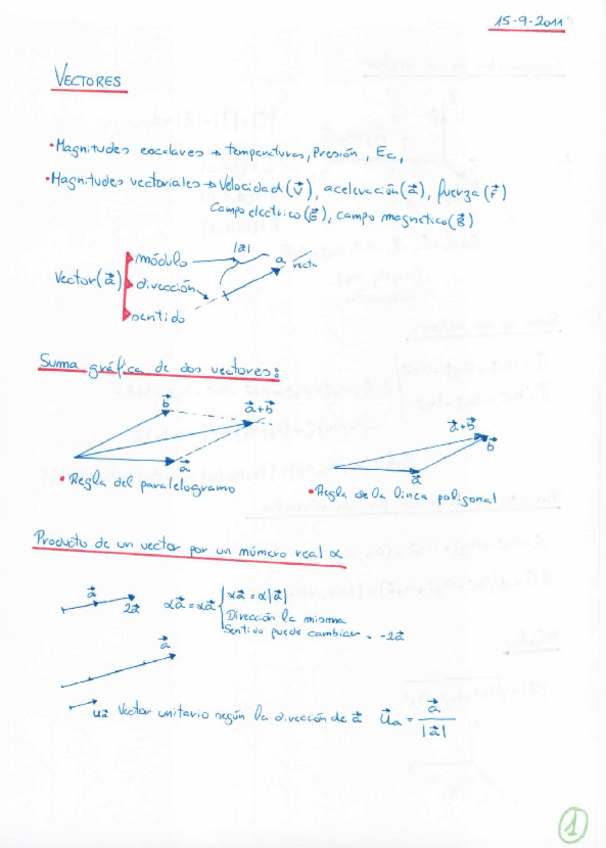 15-9-2011
VECTORES
• Magnitudes escalares → temperaturas, Presión, Ec,
• Magnitudes vectoriales → Velocidad (v⃗), aceleración (a⃗), fuerza (F⃗)
Campo electrico (E⃗), campo magnetico (B⃗)
Vector (a⃗)
módulo |a⃗|
dirección a recta
sentido
Suma gráfica de dos vectores:
b⃗ a⃗+b⃗ a⃗
a⃗+b⃗ b⃗ a⃗
• Regla del paralelogramo
• Regla de la linea poligonal
Producto de un vector por un número real α
a⃗ 2a⃗ αa⃗ = αa⃗ { αa⃗ = α|a⃗|
Dirección la misma
Sentido puede cambiar. -2a⃗
a⃗
ua⃗ Vector unitario según la dirección de a⃗ u⃗a = a⃗ / |a⃗|
1